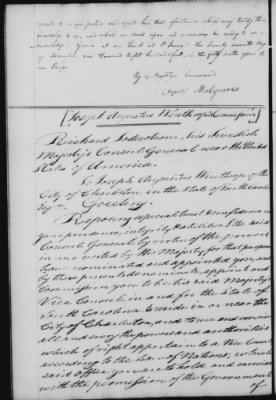 and which on such
Given at our Court at St James's the
One thousand Eight hundred and in the fifty year of
our Reign
By his Majesty's Command
signed Mulgrave
[Joseph Augustus Winthrop's Commission]
Richard Soderstrom, His Swedish
Majesty's Consul General near the United
States of America.
To Joseph Augustus Winthrop of the
City of Charleston, in the State of South Carolina
Esqr Greeting.
Reposing especial trust & confidence in
your prudence, integrity & abilities, I the said
Consul General by virtue of the powers
in me vested by His Majesty, for that purpose
have nominated and appointed you, and
by these presents do nominate, appoint and
Commission you to be his said Majesty's
Vice Consul in and for the State of
South Carolina to reside in or near the
City of Charleston, and to use and exercise
all and every the powers and authorities
which of right appertain to a Vice Consul
according to the Law of Nations, which
said office you are to hold and exercise
with the permission of the Government
of